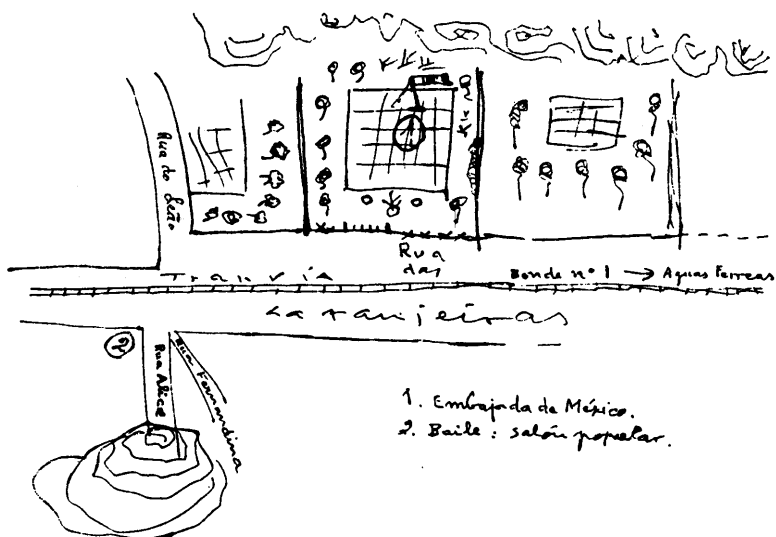 Rua do Leão
Rua das
Tranvía
Bonde nº 1 → Aguas Ferreas
Laranjeiras
2
Rua Alice
Rua Fernandina
1. Embajada de México.
2. Baile: salón popular.